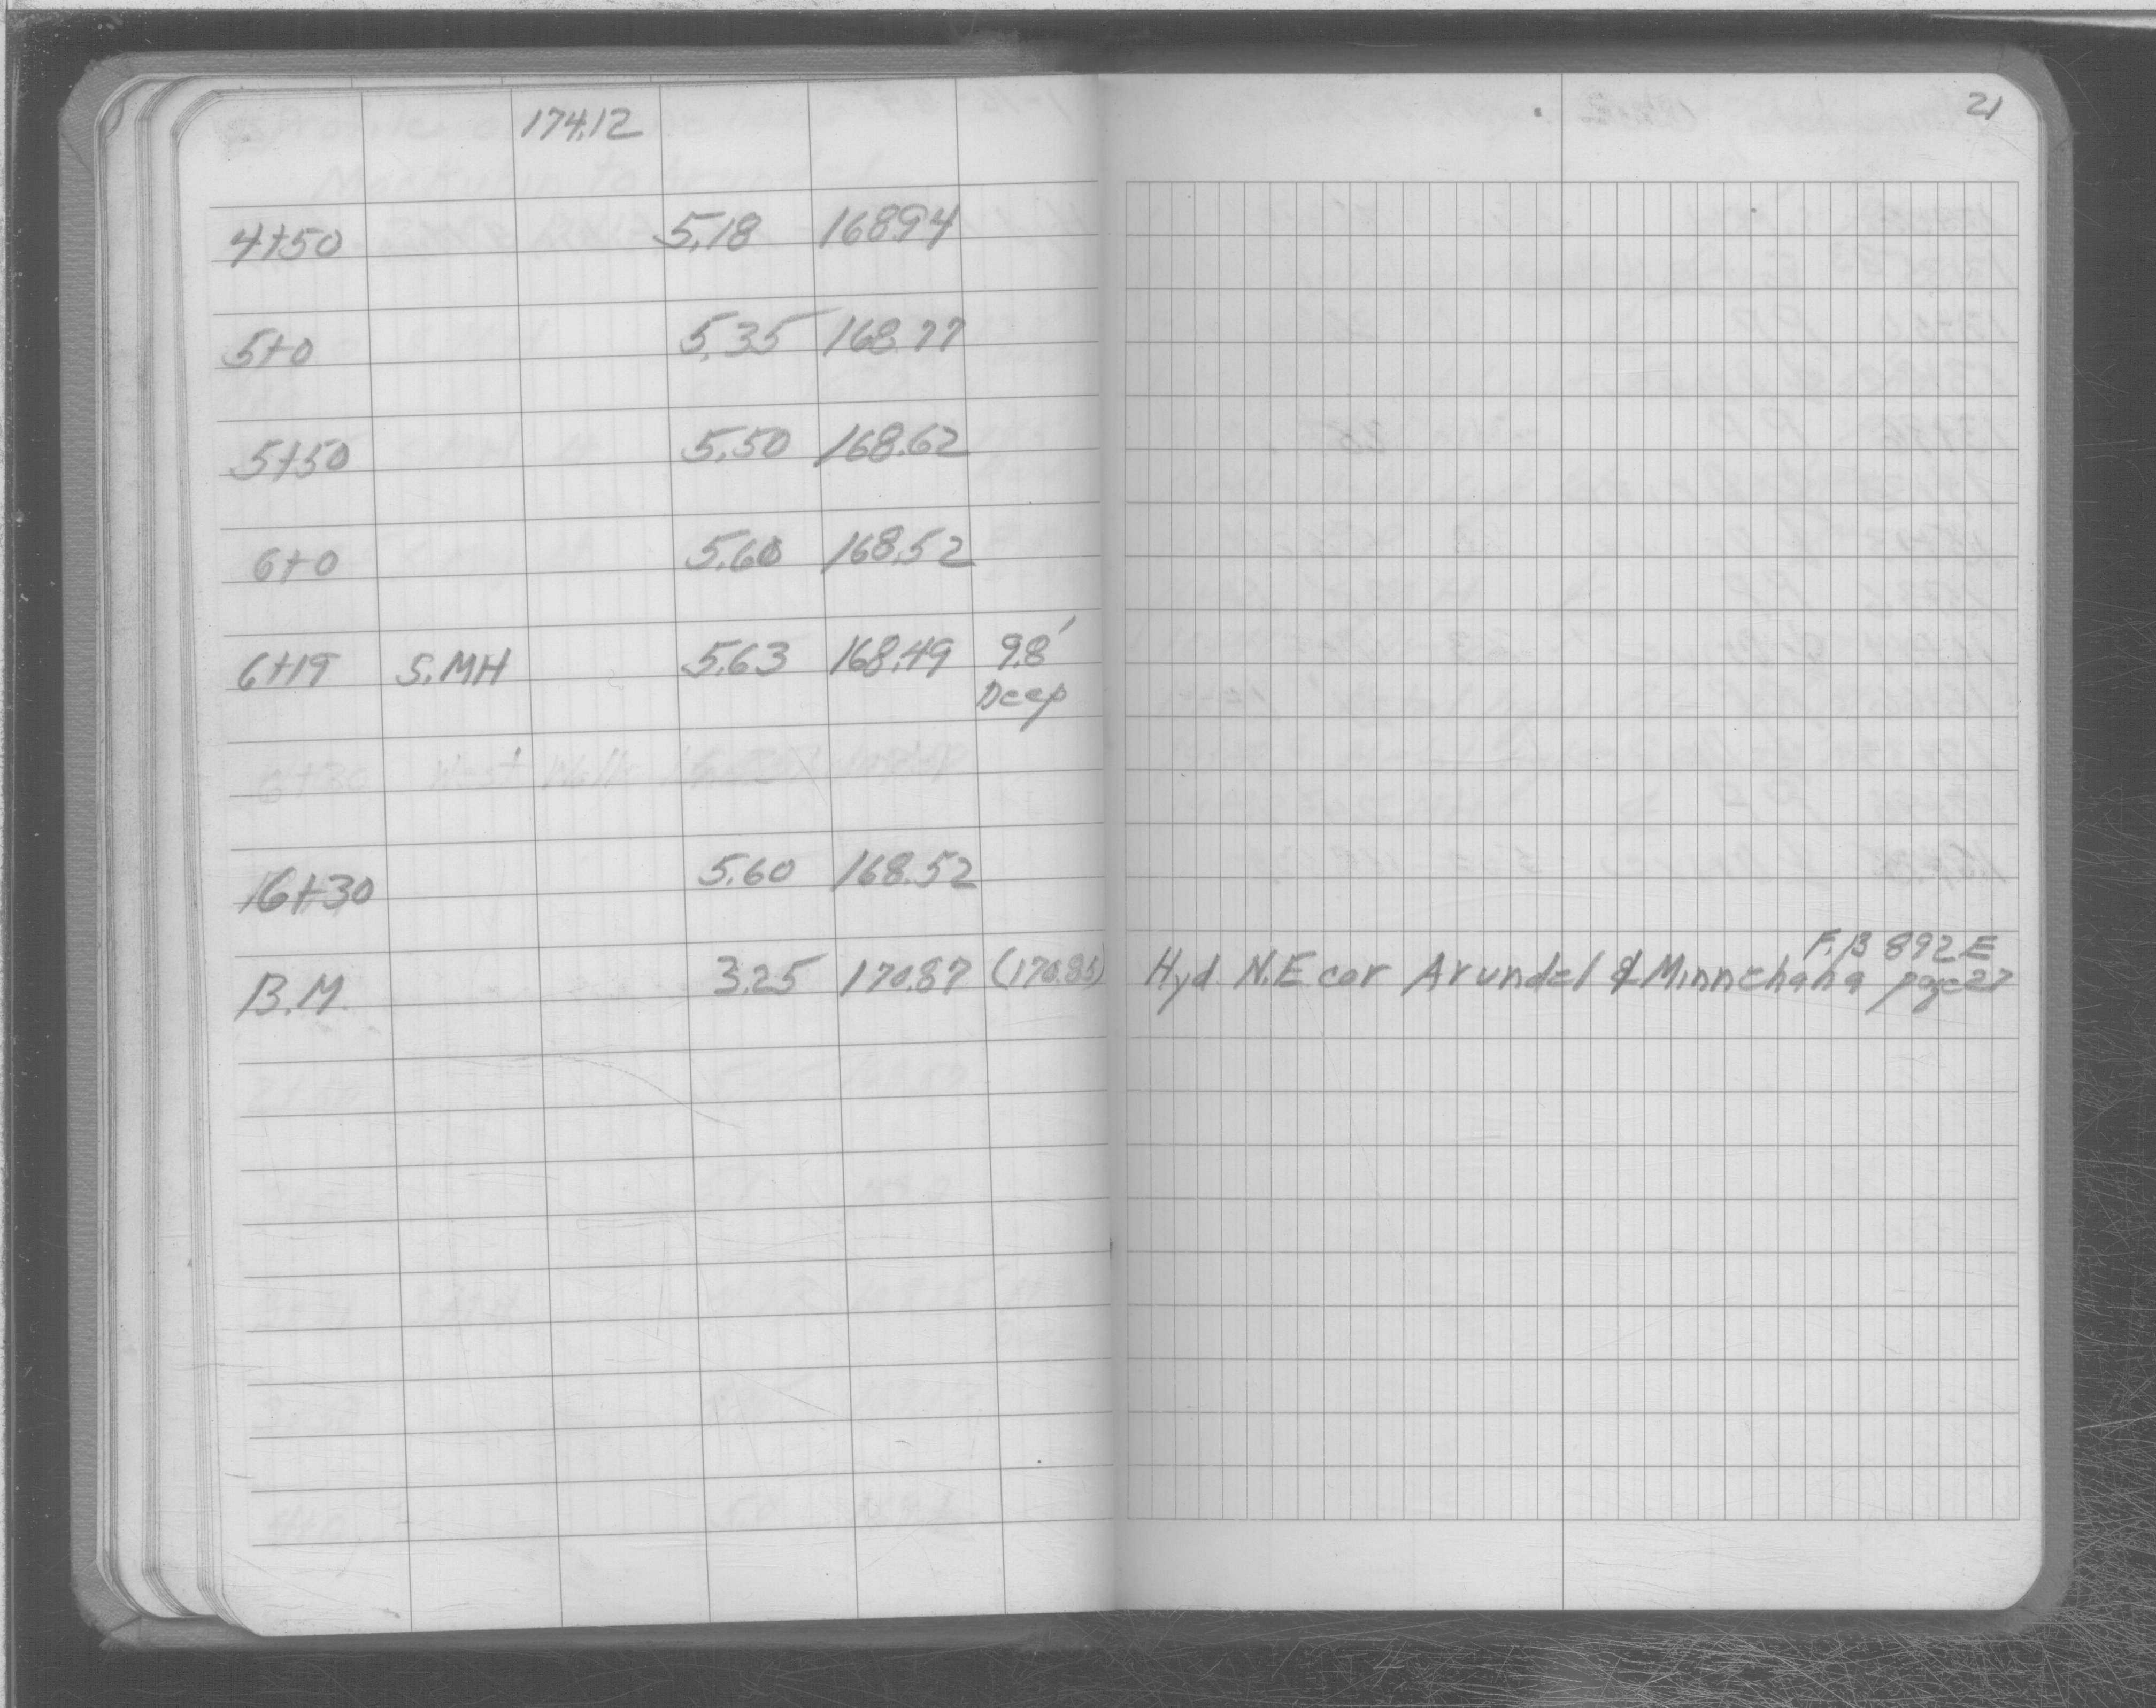 21
174.12
4+50 5.18 168.94
5+0 5.35 168.77
5+50 5.50 168.62
6+0 5.60 168.52
6+19 S.MH 5.63 168.49 9.8'
Deep
6+30 West Walk
16+30 5.60 168.52
F.B 892 E
B.M. 3.25 170.87 (170.85) Hyd. N.E cor Arundel & Minnehaha page 27